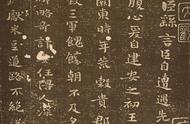 臣繇言臣自遭遇先
腹心爰自建安之初王
關東時年荒穀貴郡
三軍餽饟朝不及夕
略奇計委任得
獻米豆道路不絕